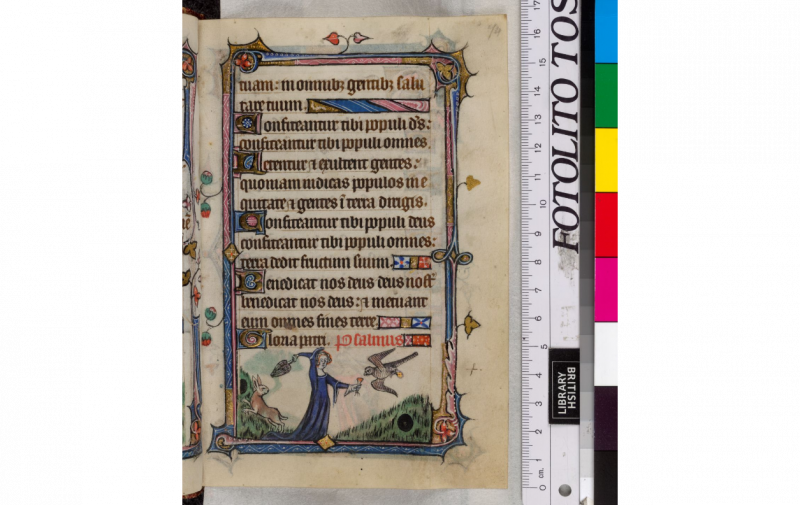 tuam: in omnibꝫ gentibꝫ salu
tare tuum.
Confiteantur tibi populi ds̄:
confiteantur tibi populi omnes.
Letentur ⁊ exultent gentes:
quoniam iudicas populos in e
quitate ⁊ gentes ī terra dirigis.
Confiteantur tibi populi deus
confiteantur tibi populi omnes:
terra dedit fructum suum.
Benedicat nos deus deus nost̄
benedicat nos deus: ⁊ metuant
eum omnes fines terre
Gloria patri. Psalmus
FOTOLITO TOS
BRITISH
LIBRARY
0 cm. 1 2 3 4 5 6 7 8 9 10 11 12 13 14 15 16 17